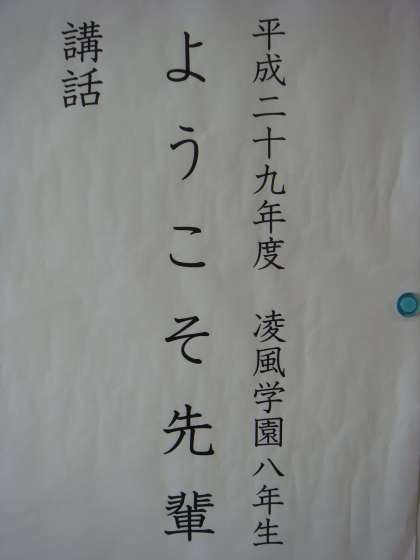 平成二十九年度　凌風学園八年生
ようこそ先輩
講話